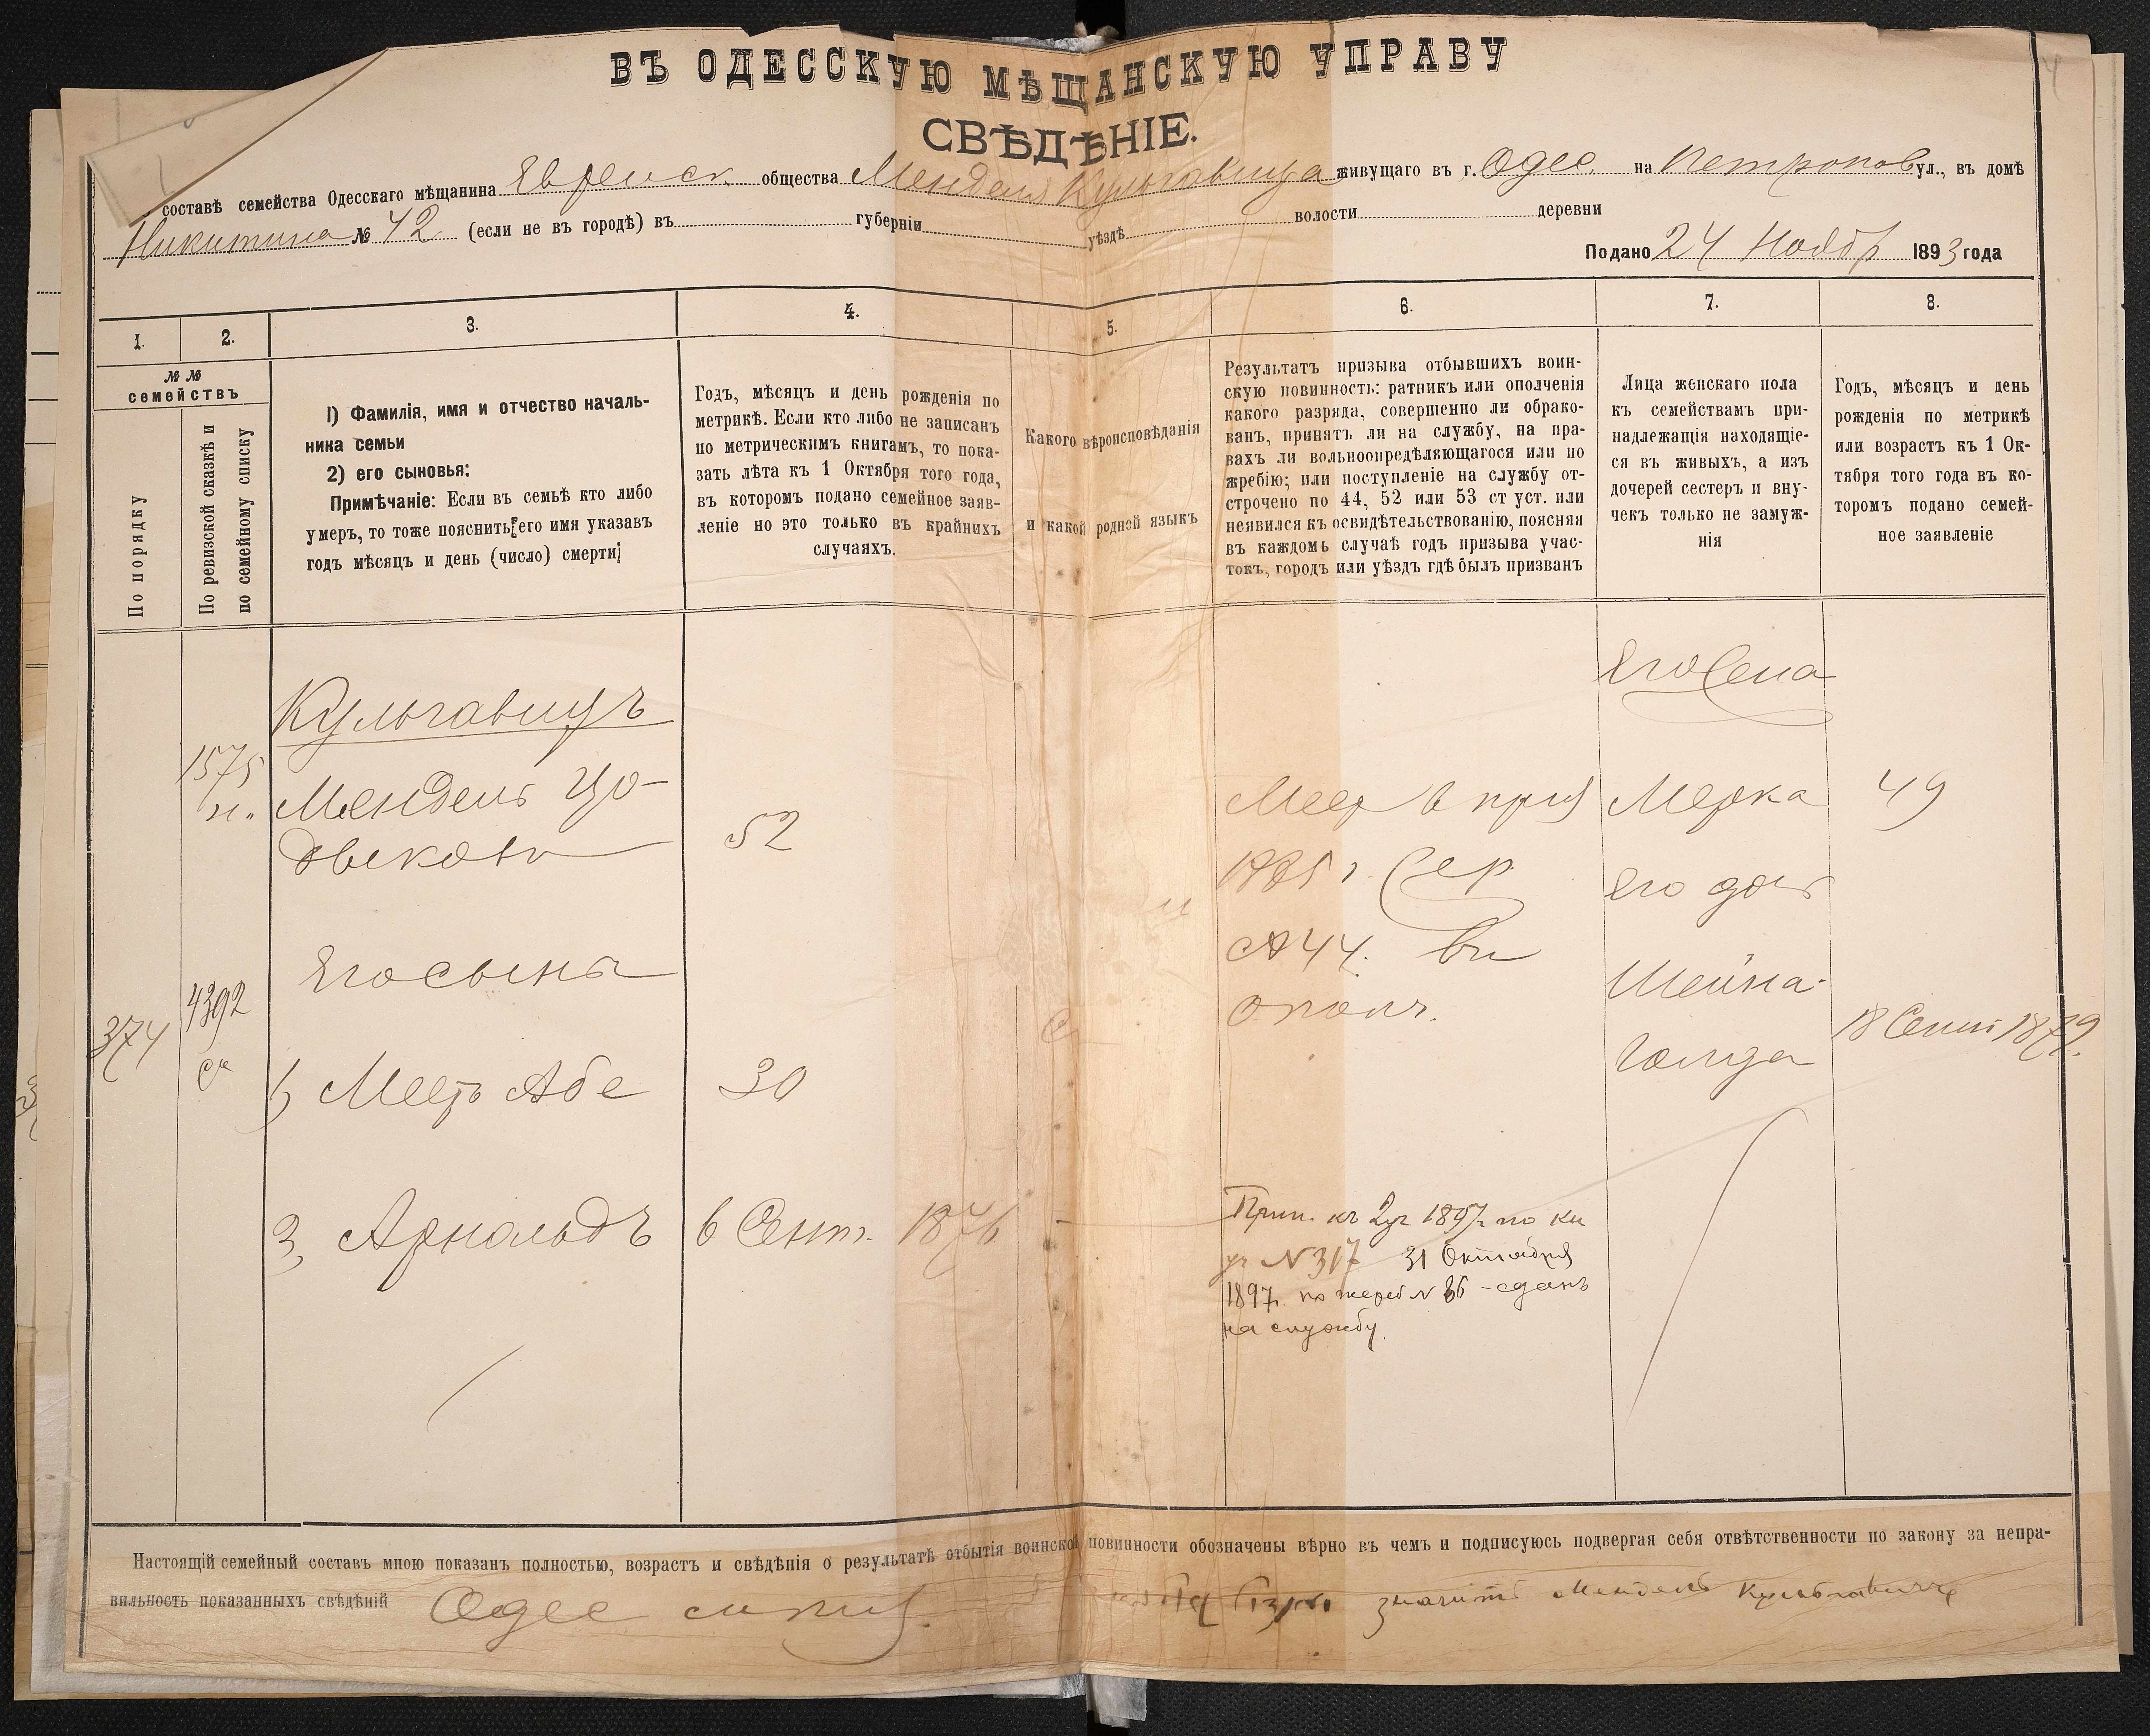 ВЪ ОДЕССКУЮ МѢЩАНСКУЮ УПРАВУ
СВѢДѢНІЕ.
составѣ семейства Одесскаго мѣщанина Еврейск. общества Мендель Кульгавица живущаго въ г. Одес. на Петропов ул., въ домѣ
Никитина № 42 (если не въ городѣ) въ губерніи уѣздѣ волости деревни
Подано 24 Ноябр 1893 года
1.
2.
3.
4.
5.
6.
7.
8.
№ №
семействъ
По порядку
По ревизской сказкѣ и
по семейному списку
1) Фамилія, имя и отчество началь-
ника семьи
2) его сыновья:
Примѣчаніе: Если въ семьѣ кто либо
умеръ, то тоже пояснить его имя указавъ
годъ мѣсяцъ и день (число) смерти
Годъ, мѣсяцъ и день рожденія по
метрикѣ. Если кто либо не записанъ
по метрическимъ книгамъ, то пока-
зать лѣта къ 1 Октября того года,
въ которомъ подано семейное заяв-
леніе но это только въ крайнихъ
случаяхъ.
Какого вѣроисповѣданія
и какой родной языкъ
Результатъ призыва отбывшихъ воин-
скую повинность: ратникъ или ополченія
какого разряда, совершенно ли обрако-
ванъ, принятъ ли на службу, на пра-
вахъ ли вольноопредѣляющагося или по
жребію; или поступленіе на службу от-
строчено по 44, 52 или 53 ст уст. или
неявился къ освидѣтельствованію, поясняя
въ каждомъ случаѣ годъ призыва учас-
токъ, городъ или уѣздъ гдѣ былъ призванъ
Лица женскаго пола
къ семействамъ при-
надлежащія находящіе-
ся въ живыхъ, а изъ
дочерей сестеръ и вну-
чекъ только не замуж-
нія
Годъ, мѣсяцъ и день
рожденія по метрикѣ
или возрастъ къ 1 Ок-
тября того года въ ко-
торомъ подано семей-
ное заявленіе
Кульгавицъ
1575
Мендель
52
Его сынъ
374
4392
1) Меер Абе
30
3, Арнольдъ
6 Сент. 1876
Меер в приз
1885 г.
44.
ополч.
1897 г. по
№ 317 31 Октября
1897 г. по жереб № 86 - сданъ
на службу.
Его
Мерка
49
Его доч
Шейна-
Голда
18 Сент 1879.
Настоящій семейный составъ мною показанъ полностью, возрастъ и свѣдѣнія о результатѣ отбытія воинской повинности обозначены вѣрно въ чемъ и подписуюсь подвергая себя отвѣтственности по закону за непра-
вильность показанныхъ свѣдѣній Одес значитъ Мендель Кульгавичъ